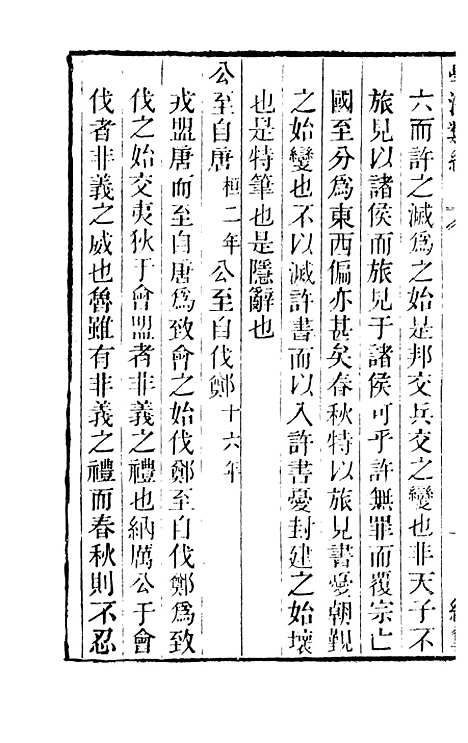 六而許之滅爲之始是邦交兵交之變也非天子不
旅見以諸侯而旅見于諸侯可乎許無罪而覆宗亡
國至分爲東西偏亦甚矣春秋特以旅見書憂朝覲
之始變也不以滅許書而以入許書憂封建之始壞
也是特筆也是隱辭也
公至自唐桓二年公至自伐鄭十六年
戎盟唐而至自唐爲致會之始伐鄭至自伐鄭爲致
伐之始交夷狄于會盟者非義之禮也納厲公于會
伐者非義之威也魯雖有非義之禮而春秋則不忍